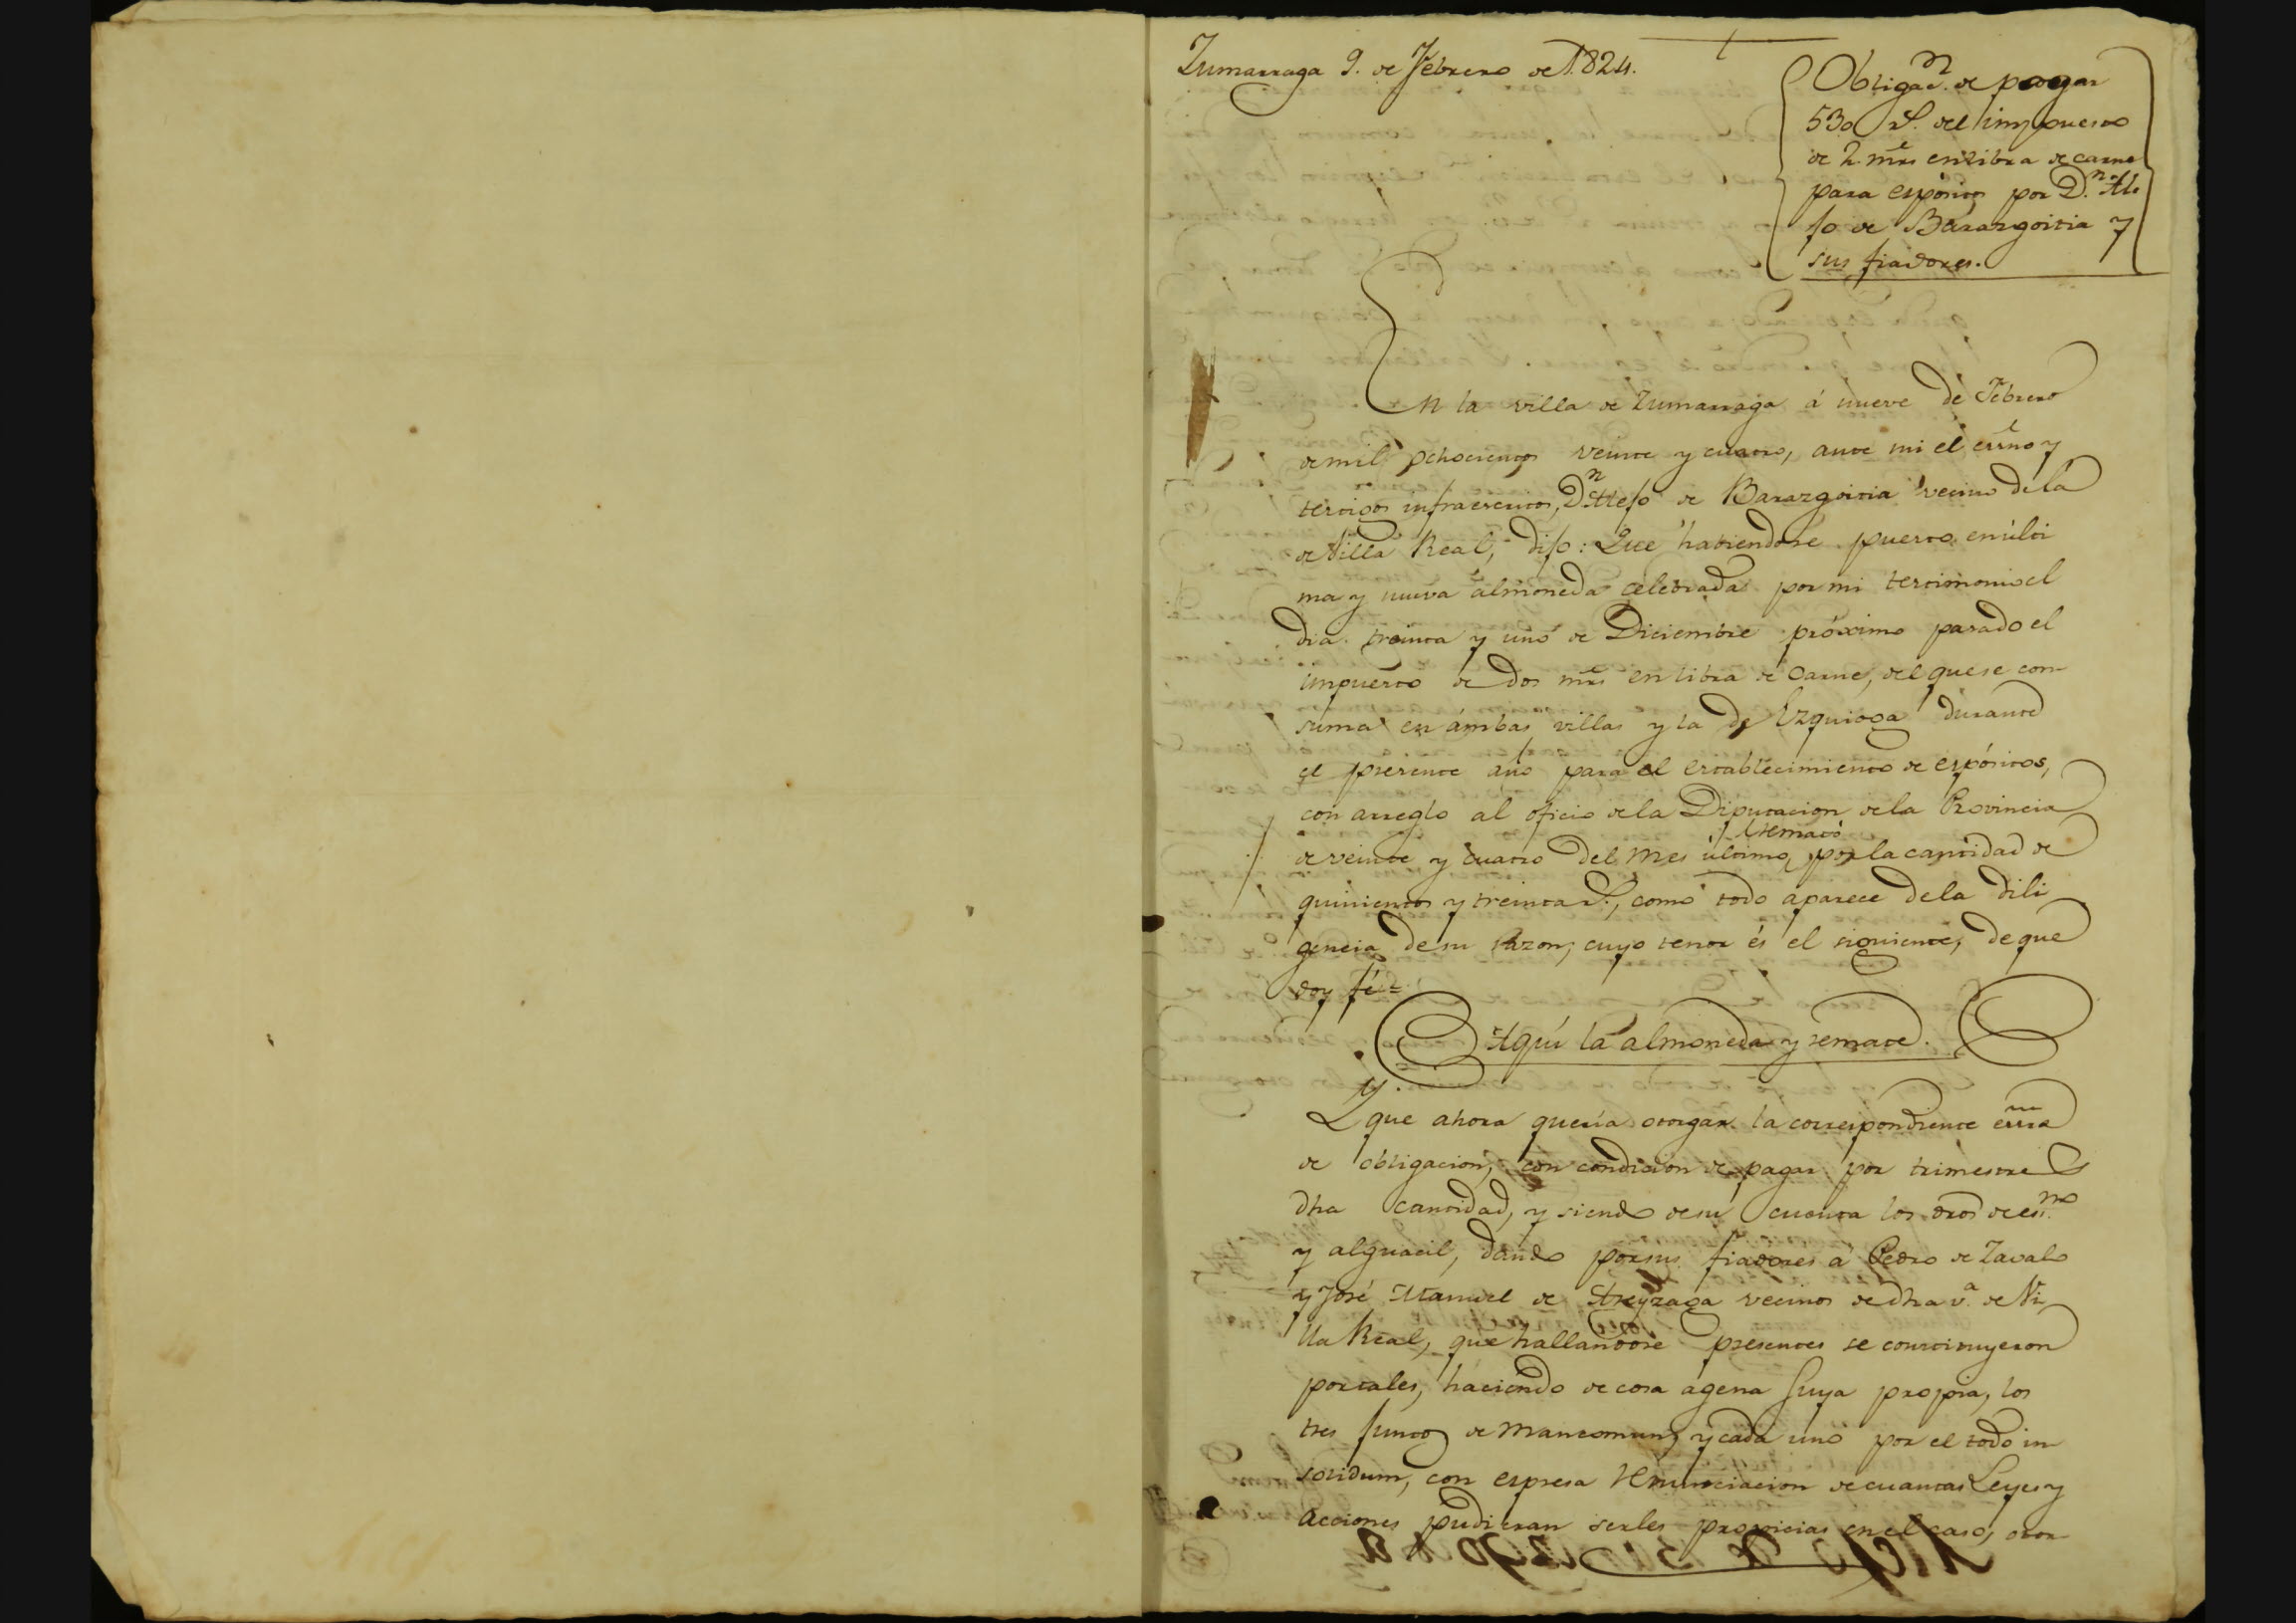 Zumarraga 9. de Febrero de 1824.
Obligac.n de pagar
530 r.s del impuesto
de 2. mrs en libra de carne
para espósitos por D.n Ale
jo de Barazgoitia y
sus fiadores.
En la villa de Zumarraga á nueve de Febrero
de mil ochocientos veinte y cuatro, ante mi el essno y
testigos infraescritos, D.n Alejo de Barazgoitia vecino de la
de Villa Real, dijo: Que habiendose puesto en últi
ma y nueva almoneda celebrada por mi testimonio el
dia treinta y uno de Diciembre próximo pasado el
impuesto de dos mrs en libra de carne, del que se con
suma en ámbas villas y la de Ezquioga durante
el presente año para el establecimiento de espósitos,
con arreglo al oficio de la Diputacion de la Provincia
de veinte y cuatro del mes último, remató por la cantidad de
quinientos y treinta r.s, como todo aparece de la dili
gencia de su razon, cuyo tenor és el siguiente, de que
doy fé =
Aquí la almoneda y remate.
Y que ahora quería otorgar la correspondiente essra
de obligacion, con condicion de pagar por trimestres
dha cantidad, y siendo de su cuenta los dros de ess.no
y alguacil, dando por sus fiadores á Pedro de Zavalo
y José Manuel de Areyzaga vecinos de dha v.a de Vi
lla Real, que hallandose presentes se constituyeron
por tales, haciendo de cosa agena suya propia, los
tres juntos de mancomun, y cada uno por el todo in
solidum, con espresa renunciacion de cuantas Leyes y
acciones pudieran serles propicias en el caso, otor